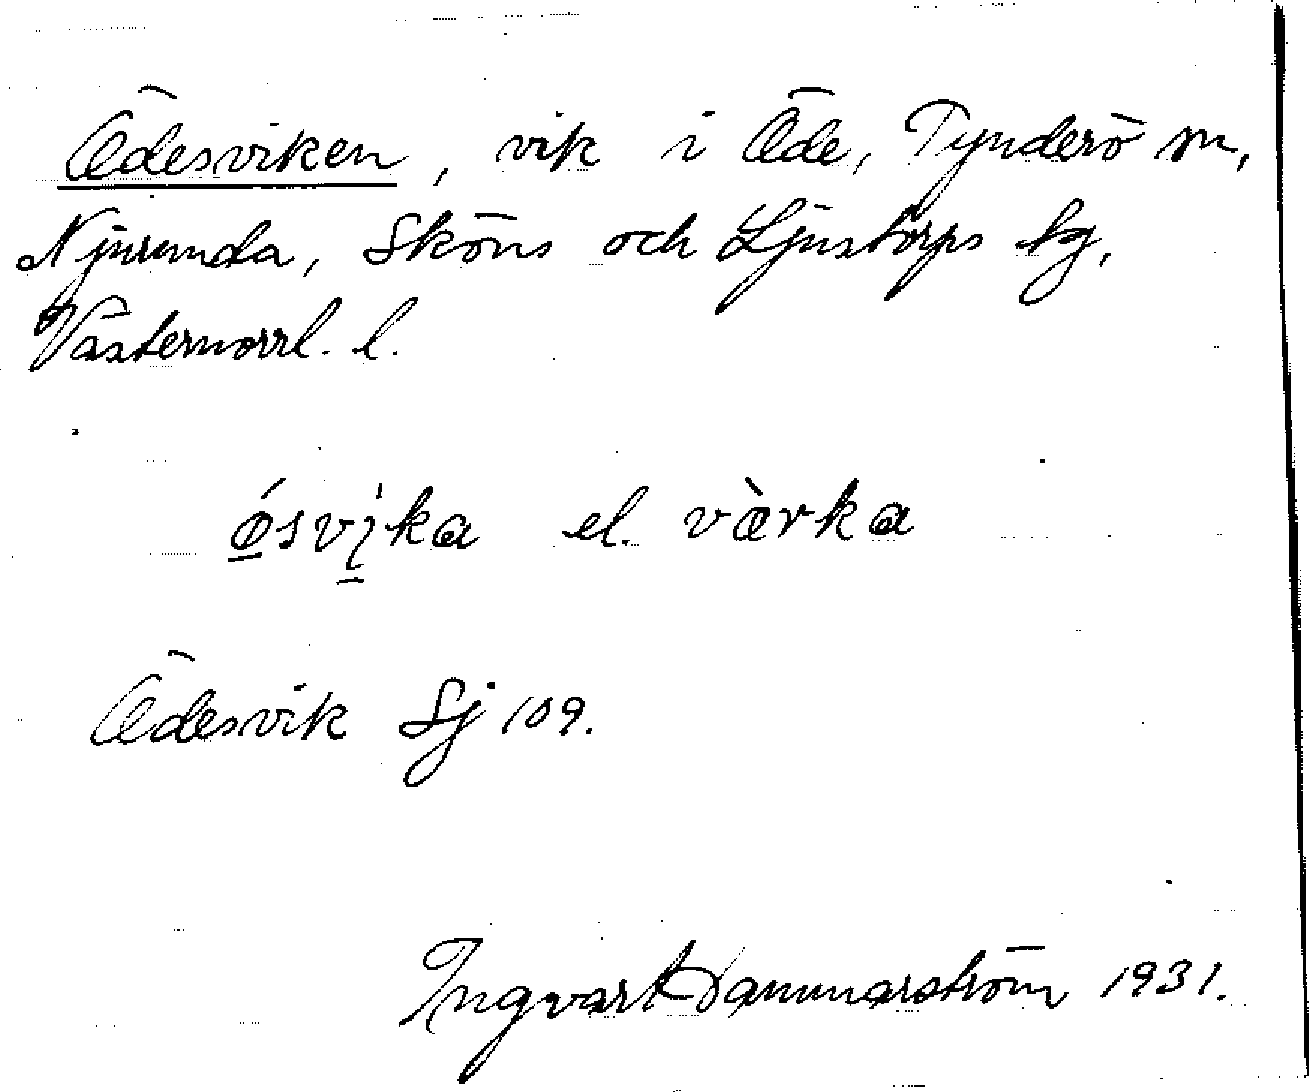 Ödesviken, vik i Öde, Tynderö sn,
Njurunda, Sköns och Ljustorps tg,
Västernorrl. l.
ǿsvi̇ka el. væ̀rka
Ödesvik Sj 109.
Ingvart Hammarström 1931.